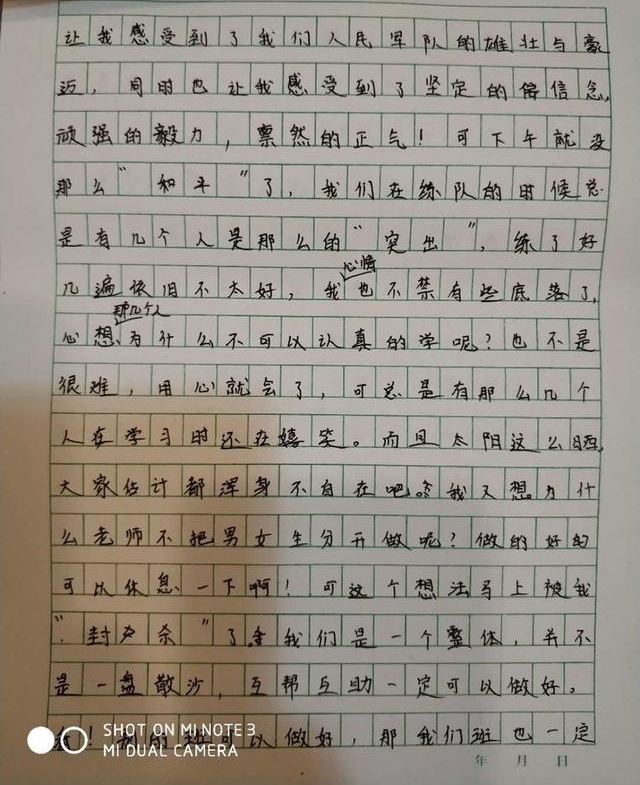 让我感受到了我们人民军队的雄壮与豪
迈，同时也让我感受到了坚定的信念，
顽强的毅力，禀然的正气！可下午就没
那么“和平”了，我们在练队的时候总
是有几个人是那么的“突出”，练了好
几遍依旧不太好，我心情也不禁有些底落了，
心想那几个人为什么不可以认真的学呢？也不是
很难，用心就会了，可总是有那么几个
人在学习时还在嬉笑。而且太阳这么晒，
大家估计都浑身不自在吧。我又想为什
么老师不把男女生分开做呢？做的好的
可以休息一下啊！可这个想法马上被我
“封杀”了。我们是一个整体，并不
是一盘散沙，互帮互助一定可以做好。
！别的班可以做好，那我们班也一定
年 月 日
SHOT ON MI NOTE 3
MI DUAL CAMERA